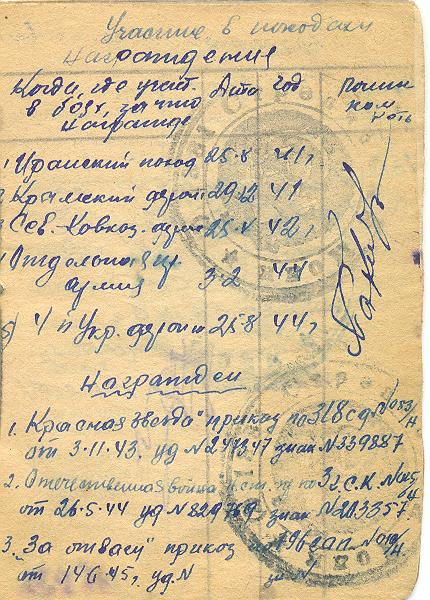 Участие в походах
Награждения
Когда, где участ. Дата год
в боях, за что
Награжде
1 Иранский поход 25-8 41 г
2 Крымский фронт 29-12 41
3 Сев. Кавказ. фронт 42 г
Отдельная
армия 3-2 44
5) 4 й Укр. фронт 25-8 44 г
Награжден
1. "Красная звезда" приказ по 318 сд N 053/н
от 3-11-43. уд N знак N 339887
2. Отечественная война по 3 г.с.к. N
от 26-5-44 уд N 829769 знак N 213357
3. "За отвагу" приказ
от 14 6 45 г. уд. N N